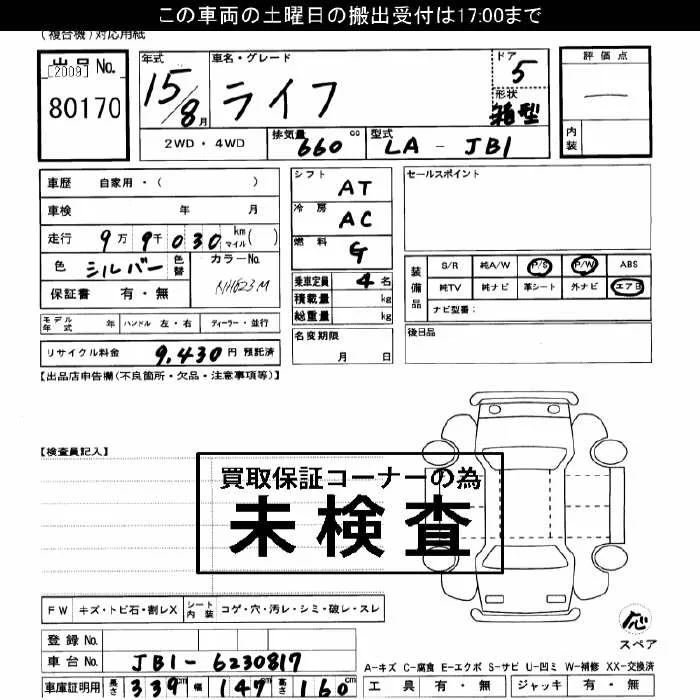 この車両の土曜日の搬出受付は17:00まで
(複合機)対応用紙
出品 No.
[2009]
80170
年式
15/8月
車名・グレード
ライフ
ドア
5
形状
箱型
評価点
内装
2WD・4WD
排気量
660 cc
型式
LA - JB1
車歴 自家用・( )
車検 年 月
走行 9万 9千 030 km マイル( )
色 シルバー 色替 カラーNo. NH623M
保証書 有・無
シフト AT
冷房 AC
燃料 G
乗車定員 4 名
積載量 kg
総重量 kg
名変期限
月 日
セールスポイント
装備品
S/R 純A/W P/S P/W ABS
純TV 純ナビ 革シート 外ナビ エアB
ナビ型番:
後日品
モデル年式 年 ハンドル 左・右 ディーラー・並行
リサイクル料金 9,430 円 預託済
【出品店申告欄(不良箇所・欠品・注意事項等)】
【検査員記入】
買取保証コーナーの為
未検査
FW キズ・トビ石・割レX シート内装 コゲ・穴・汚レ・シミ・破レ・スレ
登録 No.
車台 No. JB1-6230817
車庫証明用 長さ 339cm 幅 147cm 高さ 160cm
応
スペア
A-キズ C-腐食 E-エクボ S-サビ U-凹ミ W-補修 XX-交換済
工具 有・無 ジャッキ 有・無